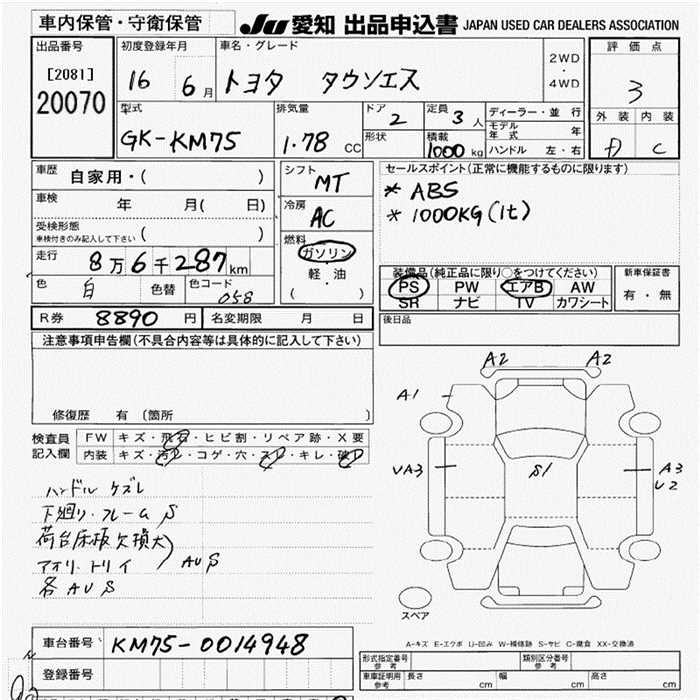 車内保管・守衛保管
JU 愛知 出品申込書 JAPAN USED CAR DEALERS ASSOCIATION
出品番号
[2081]
20070
初度登録年月
16 6月
車名・グレード
トヨタ タウンエース
2WD
・
4WD
評価点
3
型式
GK-KM75
排気量
1.78 CC
ドア
2
形状
定員
3人
積載
1000kg
ディーラー・並行
モデル年式 年
ハンドル 左・右
外装 内装
D C
車歴
自家用・( )
車検
年 月( 日)
受検形態
車検付きのみ記入して下さい ( )
走行
8万6千287km
色
白
色替
色コード
058
シフト
MT
冷房
AC
燃料
ガソリン
軽・油
( )
セールスポイント(正常に機能するものに限ります)
* ABS
* 1000KG(1t)
装備品(純正品に限り○をつけてください)
PS PW エアB AW
SR ナビ TV カワシート
新車保証書
有・無
R券 8890円
名変期限 月 日
後日品
注意事項申告欄(不具合内容等は具体的に記入して下さい)
修復歴 有 (箇所 )
検査員記入欄
FW キズ・飛石・ヒビ割・リペア跡・X要
内装 キズ・汚レ・コゲ・穴・スレ・キレ・破レ
ハンドル ケズレ
下廻り・フレーム S
荷台床板欠損大
アオリ・トリイ AUS
各AUS
A2 A2
A1
VA3 S1 A3
U2
スペア
A-キズ E-エクボ U-凹み W-補修跡 S-サビ C-腐食 XX-交換済
車台番号 KM75-0014948
登録番号
形式指定番号
参考
類別区分番号
参考
車庫証明用
参考
長さ cm 幅 cm 高さ cm